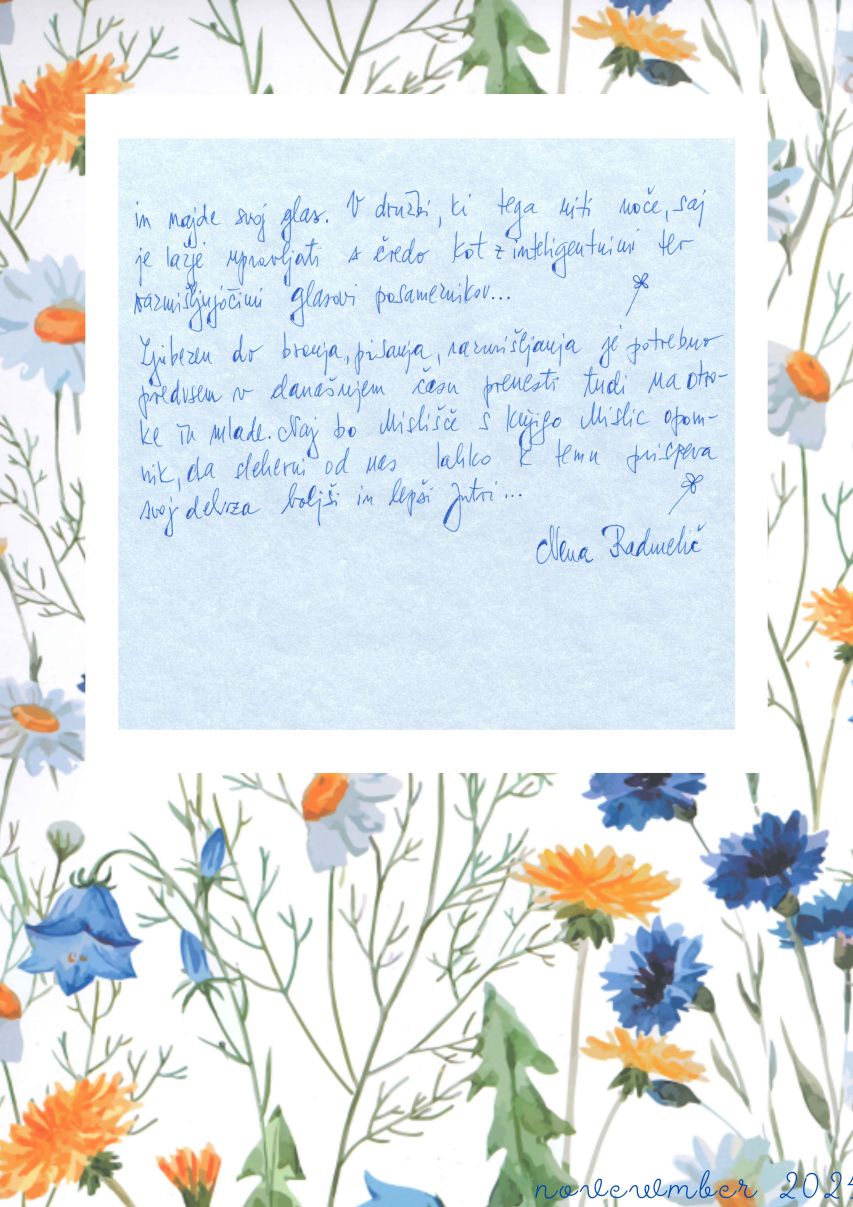 in najde svoj glas. V družbi, ki tega niti noče, saj
je lažje upravljati s čredo kot z inteligentnimi ter
razmišljujočimi glasovi posameznikov...
Ljubezen do branja, pisanja, razmišljanja je potrebno
predvsem v današnjem času prenesti tudi na otro-
ke in mlade. Naj bo Mislišče s knjigo Mislic opom-
nik, da sleherni od nas lahko k temu prispeva
svoj del za boljši in lepši jutri...
Nena Radmelič
november 202